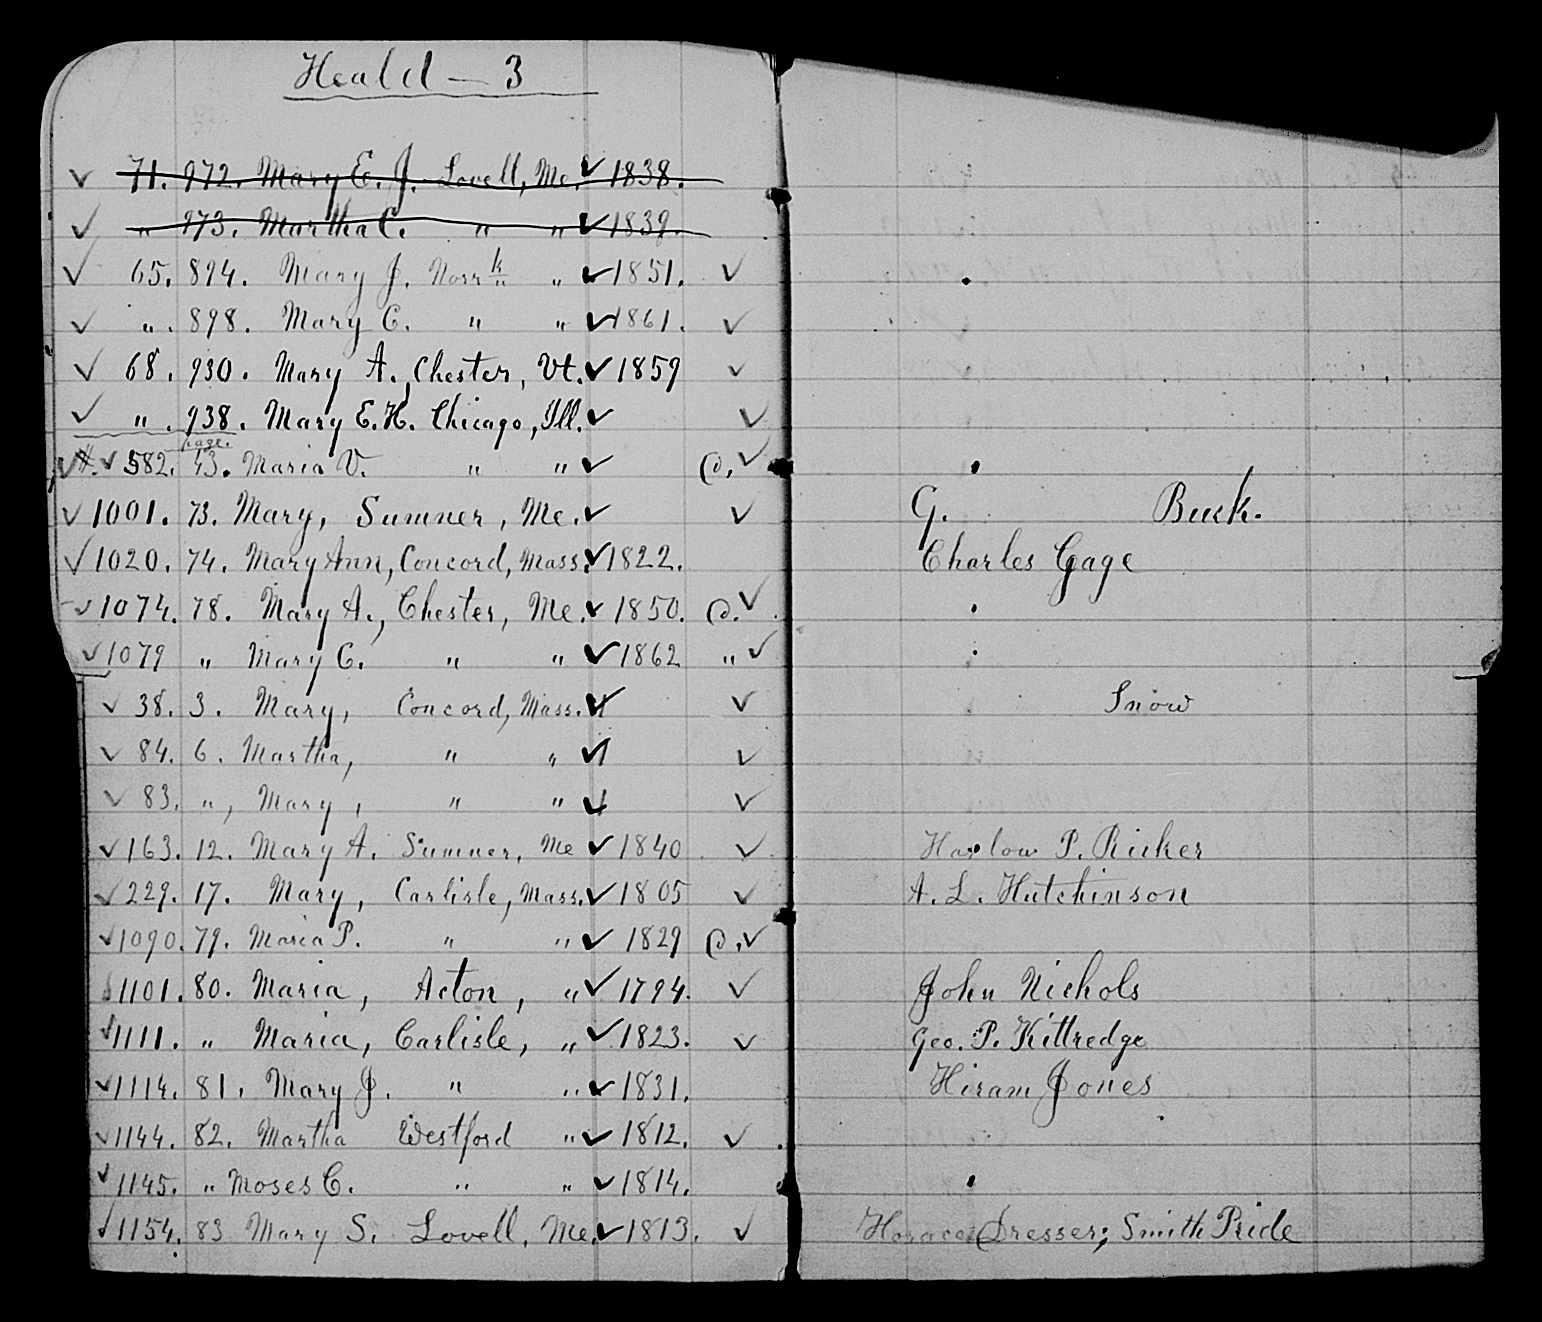 Heald — 3
71. 972. Mary E. J. Lovell, Me. 1838.
" 973. Martha C. " " 1839.
65. 894. Mary J. Norrk " 1851.
" . 898. Mary C. " " 1861.
68. 930. Mary A., Chester, Vt. 1859
" . 938. Mary E. H. Chicago, Ill.
page.
582. 43. Maria V. " "
1001. 73. Mary, Sumner, Me. G. Buck.
1020. 74. Mary Ann, Concord, Mass. 1822. Charles Gage
1074. 78. Mary A., Chester, Me. 1850.
1079 " Mary C. " " 1862 "
38. 3. Mary, Concord, Mass. Snow
84. 6. Martha, " "
83. ", Mary, " "
163. 12. Mary A. Sumner, Me 1840 Harlow P. Ricker
229. 17. Mary, Carlisle, Mass. 1805 A. L. Hutchinson
1090. 79. Maria P. " " 1829
1101. 80. Maria, Acton, " 1794. John Nichols
1111. " Maria, Carlisle, " 1823. Geo. P. Kittredge
1114. 81. Mary J. " " 1831. Hiram Jones
1144. 82. Martha Westford " 1812.
1145. " Moses C. " " 1814.
1154. 83 Mary S. Lovell, Me. 1813. Horace Dresser; Smith Pride